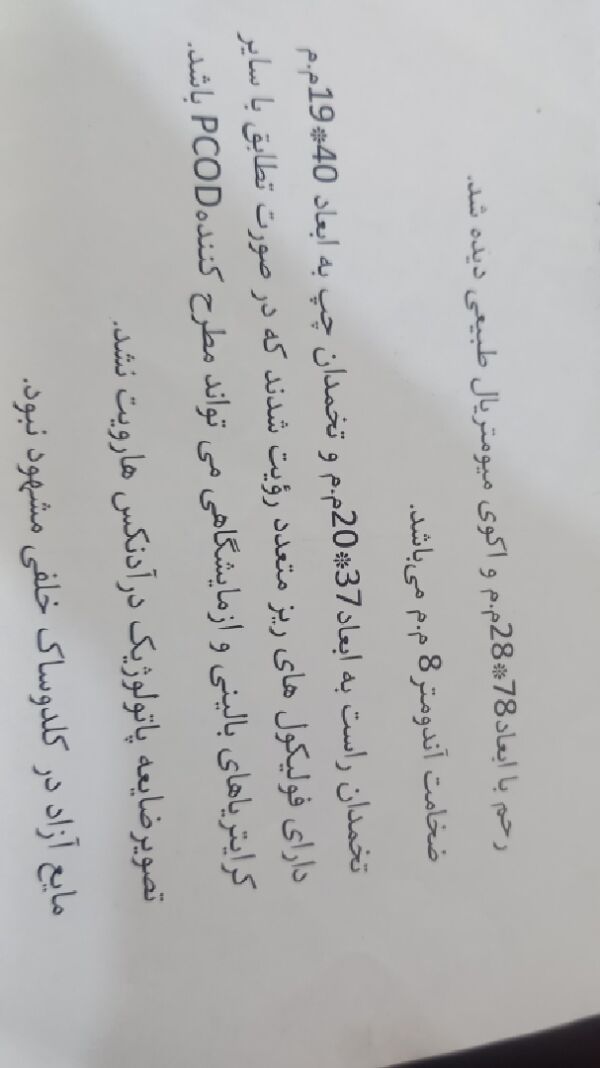 رحم با ابعاد78*28م.م و اکوی میومتریال طبیعی دیده شد.
ضخامت آندومتر8 م.م می‌باشد.
تخمدان راست به ابعاد37*20م.م و تخمدان چپ به ابعاد 40*19م.م
دارای فولیکول های ریز متعدد رؤیت شدند که در صورت تطابق با سایر
کرایتریاهای بالینی و ازمایشگاهی می تواند مطرح کنندهPCOD باشد.
تصویرضایعه پاتولوژیک درآدنکس هارویت نشد.
مایع آزاد در کلدوساک خلفی مشهود نبود.